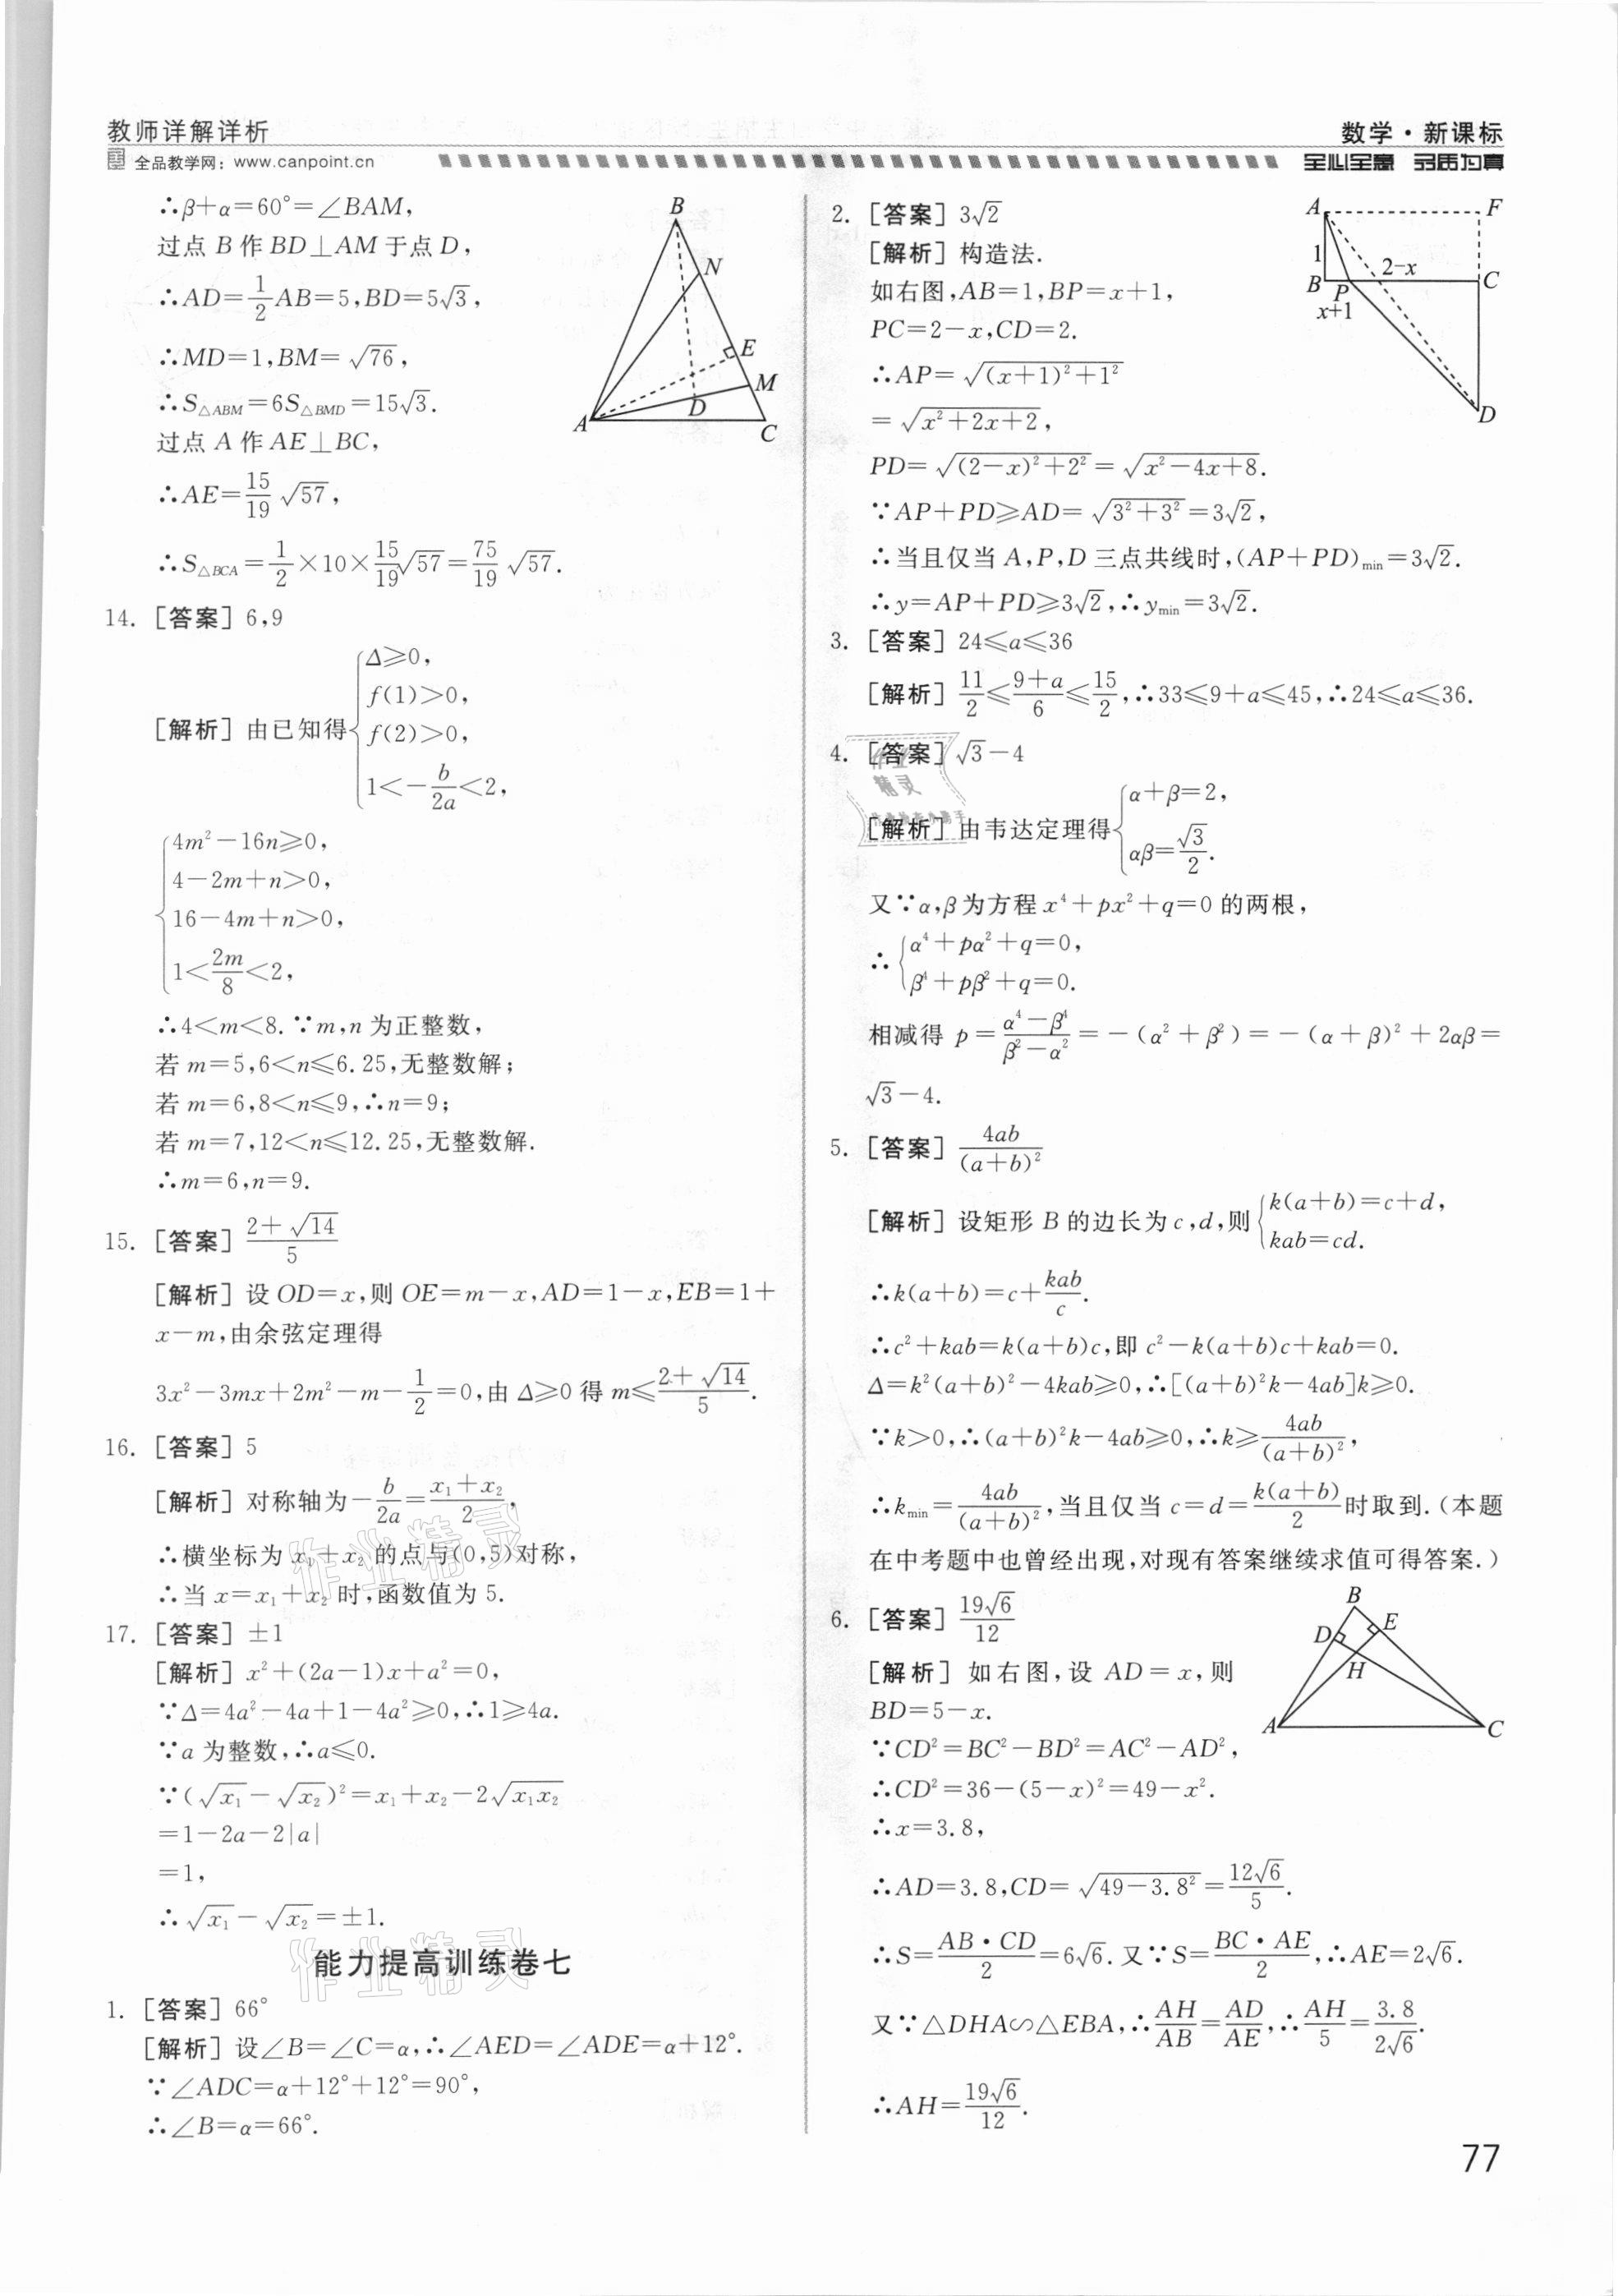 教师详解详析
数学·新课标
全品教学网：www.canpoint.cn
全心全意 字质为真
∴β+α=60°=∠BAM,
过点 B 作 BD⊥AM 于点 D,
∴AD=1/2 AB=5,BD=5√3,
∴MD=1,BM=√76,
∴S△ABM=6S△BMD=15√3.
过点 A 作 AE⊥BC,
∴AE=15/19 √57,
∴S△BCA=1/2×10×15/19√57=75/19 √57.
B
N
E
M
D
A
C
14. [答案] 6,9
[解析] 由已知得{Δ≥0,
f(1)>0,
f(2)>0,
1<-b/2a<2,
{4m²-16n≥0,
4-2m+n>0,
16-4m+n>0,
1<2m/8<2,
∴4<m<8.∵m,n 为正整数,
若 m=5,6<n≤6.25,无整数解;
若 m=6,8<n≤9,∴n=9;
若 m=7,12<n≤12.25,无整数解.
∴m=6,n=9.
15. [答案] (2+√14)/5
[解析] 设 OD=x,则 OE=m-x,AD=1-x,EB=1+
x-m,由余弦定理得
3x²-3mx+2m²-m-1/2=0,由 Δ≥0 得 m≤(2+√14)/5.
16. [答案] 5
[解析] 对称轴为-b/2a=(x₁+x₂)/2,
∴横坐标为 x₁+x₂ 的点与(0,5)对称,
∴当 x=x₁+x₂ 时,函数值为 5.
17. [答案] ±1
[解析] x²+(2a-1)x+a²=0,
∵Δ=4a²-4a+1-4a²≥0,∴1≥4a.
∵a 为整数,∴a≤0.
∵(√x₁-√x₂)²=x₁+x₂-2√x₁x₂
=1-2a-2|a|
=1,
∴√x₁-√x₂=±1.
能力提高训练卷七
1. [答案] 66°
[解析] 设∠B=∠C=α,∴∠AED=∠ADE=α+12°.
∵∠ADC=α+12°+12°=90°,
∴∠B=α=66°.
2. [答案] 3√2
[解析] 构造法.
如右图,AB=1,BP=x+1,
PC=2-x,CD=2.
∴AP=√((x+1)²+1²)
=√(x²+2x+2),
PD=√((2-x)²+2²)=√(x²-4x+8).
∵AP+PD≥AD=√(3²+3²)=3√2,
∴当且仅当 A,P,D 三点共线时,(AP+PD)min=3√2.
∴y=AP+PD≥3√2,∴ymin=3√2.
A
F
1
2-x
B
P
C
x+1
D
3. [答案] 24≤a≤36
[解析] 11/2≤(9+a)/6≤15/2,∴33≤9+a≤45,∴24≤a≤36.
4. [答案] √3-4
[解析] 由韦达定理得{α+β=2,
αβ=√3/2.
又∵α,β为方程 x⁴+px²+q=0 的两根,
∴{α⁴+pα²+q=0,
β⁴+pβ²+q=0.
相减得 p=(α⁴-β⁴)/(β²-α²)=-(α²+β²)=-(α+β)²+2αβ=
√3-4.
5. [答案] 4ab/(a+b)²
[解析] 设矩形 B 的边长为 c,d,则{k(a+b)=c+d,
kab=cd.
∴k(a+b)=c+kab/c.
∴c²+kab=k(a+b)c,即 c²-k(a+b)c+kab=0.
Δ=k²(a+b)²-4kab≥0,∴[(a+b)²k-4ab]k≥0.
∵k>0,∴(a+b)²k-4ab≥0,∴k≥4ab/(a+b)²,
∴kmin=4ab/(a+b)²,当且仅当 c=d=k(a+b)/2时取到.(本题
在中考题中也曾经出现,对现有答案继续求值可得答案.)
6. [答案] 19√6/12
[解析] 如右图,设 AD=x,则
BD=5-x.
∵CD²=BC²-BD²=AC²-AD²,
∴CD²=36-(5-x)²=49-x².
∴x=3.8,
∴AD=3.8,CD=√(49-3.8²)=12√6/5.
∴S=AB·CD/2=6√6.又∵S=BC·AE/2,∴AE=2√6.
又∵△DHA∽△EBA,∴AH/AB=AD/AE,∴AH/5=3.8/2√6.
∴AH=19√6/12.
B
D
E
H
A
C
作业精灵
作业精灵
作业精灵
77